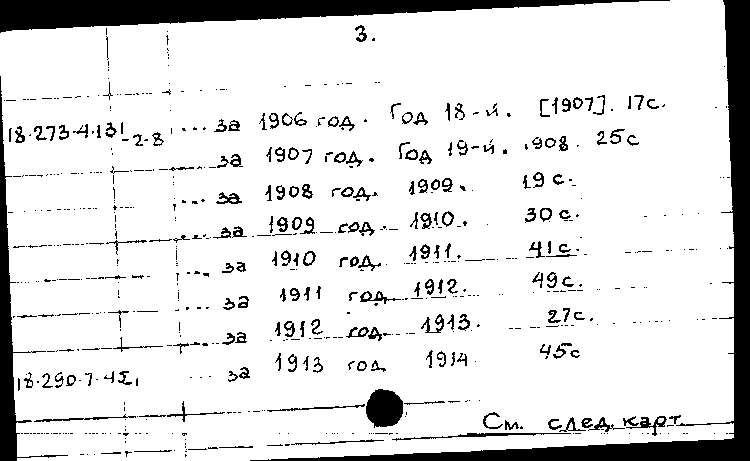 3.
18.273.4.131-2-8 ... за 1906 год. Год 18-й. [1907]. 17с.
за 1907 год. Год 19-й. 1908. 25с
... за 1908 год. 1909. 19с.
... за 1909 год. 1910. 30с.
... за 1910 год. 1911. 41с.
... за 1911 год. 1912. 49с.
... за 1912 год. 1913. 27с.
18.290.7.45, ... за 1913 год 1914. 45с
См. след. карт.